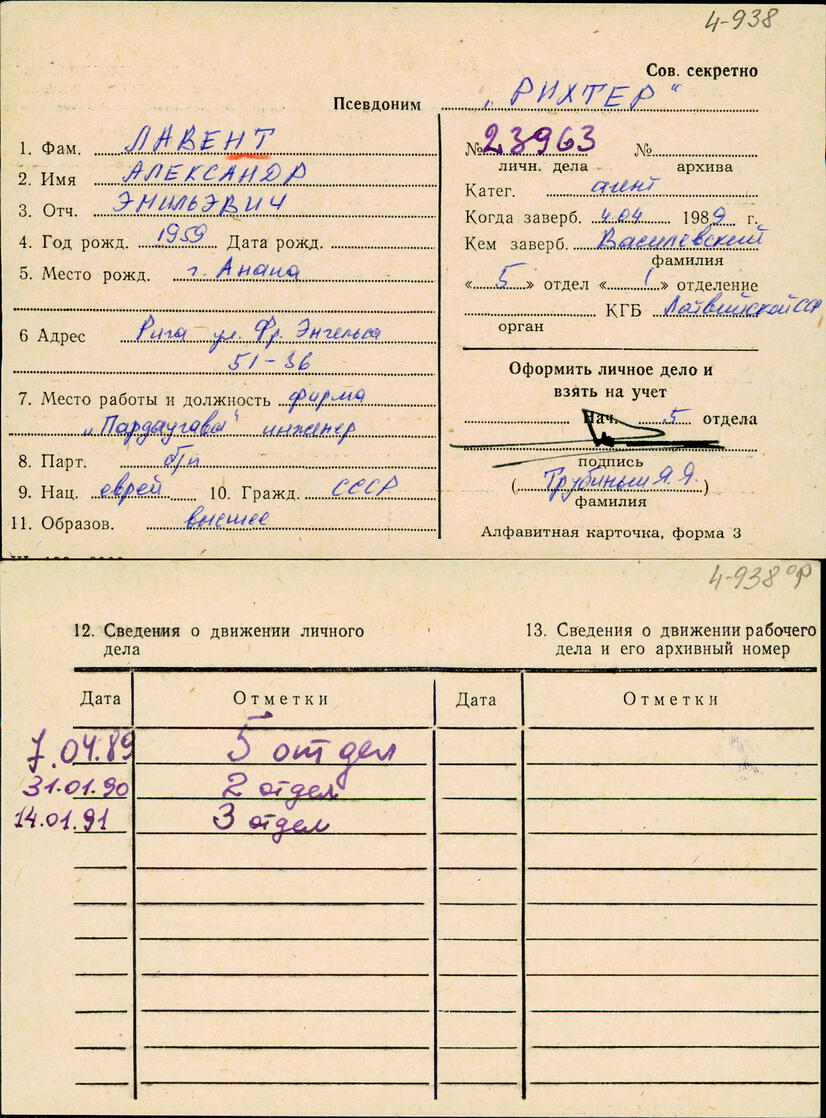 4-938
Сов. секретно
Псевдоним „РИХТЕР“
1. Фам. ЛАВЕНТ
2. Имя АЛЕКСАНДР
3. Отч. ЭМИЛЬЭВИЧ
4. Год рожд. 1959 Дата рожд.
5. Место рожд. г. Анапа
6 Адрес Рига ул. Фр. Энгельса
51-36
7. Место работы и должность фирма
„Пардаугава“ инженер
8. Парт. б/п
9. Нац. еврей 10. Гражд. СССР
11. Образов. высшее
№ 23963 №
личн. дела архива
Катег. агент
Когда заверб. 4.04 1989 г.
Кем заверб. Василевский
фамилия
« 5 » отдел « 1 » отделение
КГБ Латвийской ССР
орган
Оформить личное дело и
взять на учет
Нач. 5 отдела
подпись
( Трубиньш Я.Я. )
фамилия
Алфавитная карточка, форма 3
4-938 ор
12. Сведения о движении личного
дела
13. Сведения о движении рабочего
дела и его архивный номер
Дата Отметки Дата Отметки
7.04.89 5 отдел
31.01.90 2 отдел
14.01.91 3 отдел